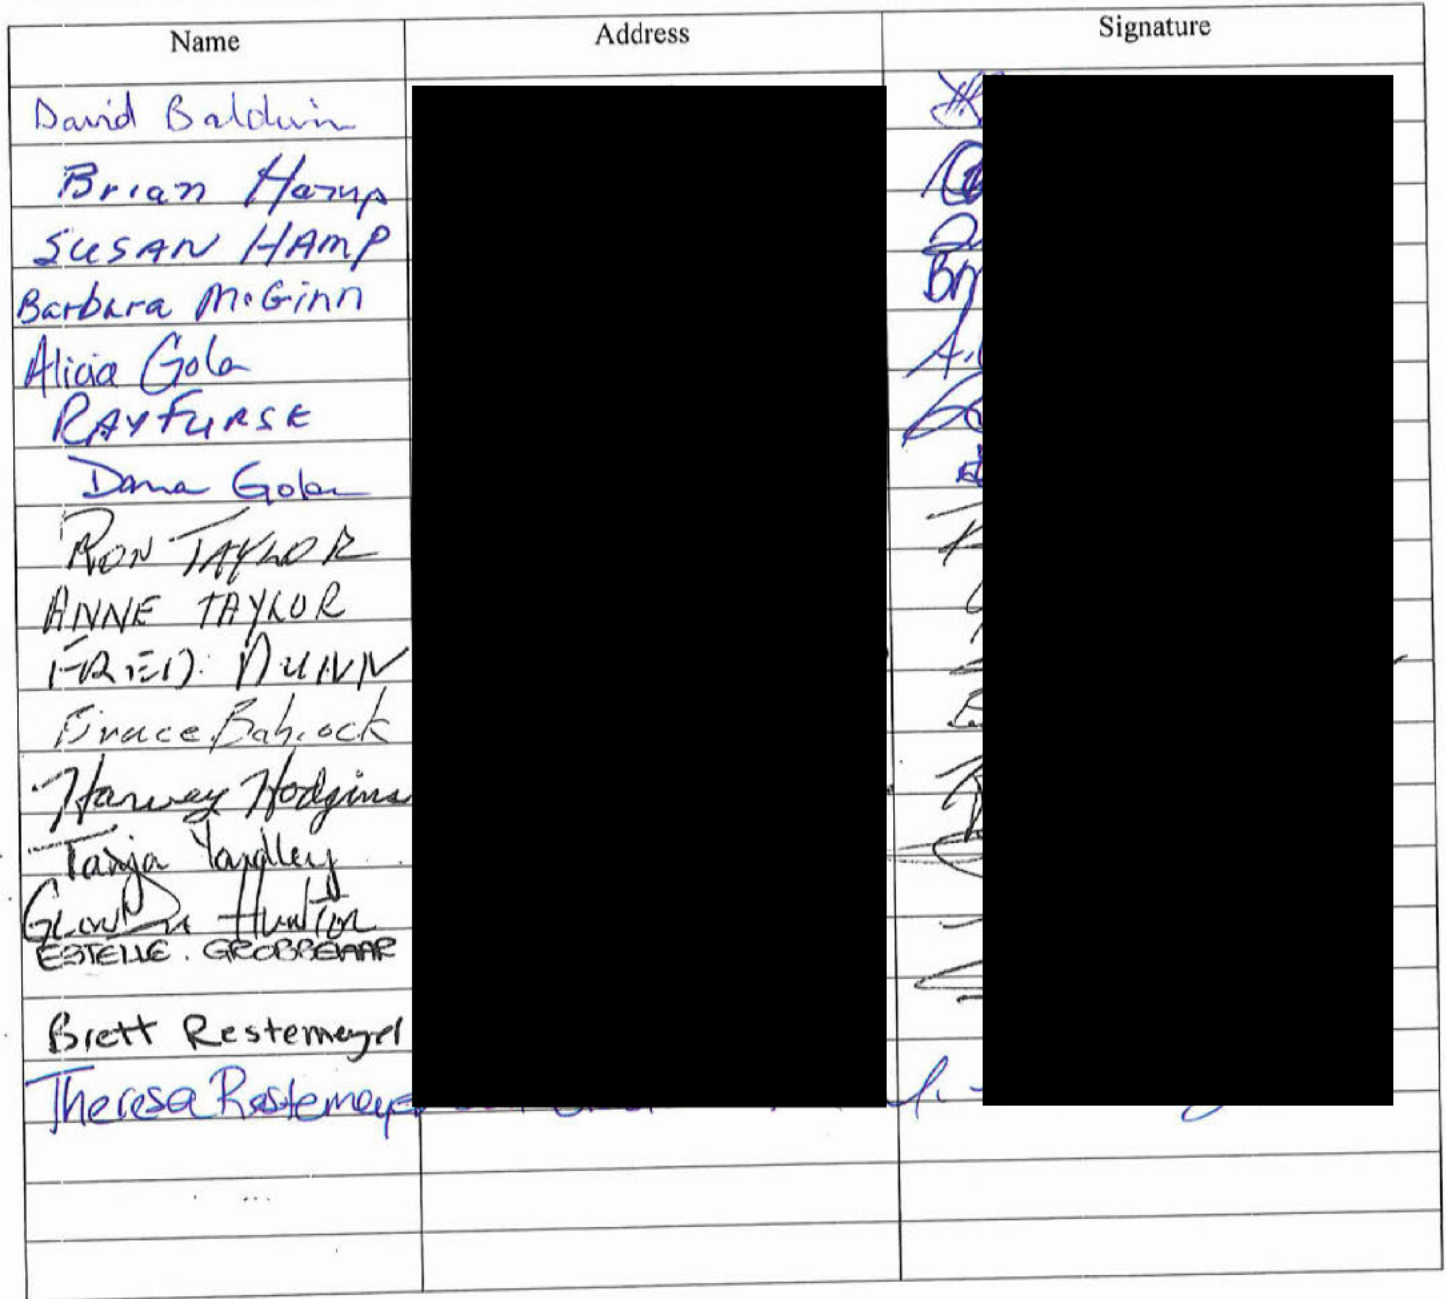 Name Address Signature
David Baldwin
Brian Hamp
SUSAN HAMP
Barbara McGinn
Alicia Gola
RAY FURSE
Dana Gola
RON TAYLOR
ANNE TAYLOR
FRED. DUNN
Bruce Babcock
Harvey Hodgins
Tanja Yardley
Hunter
ESTELLE. GROBBELAAR
Brett Restemeyer
Theresa Restemeyer